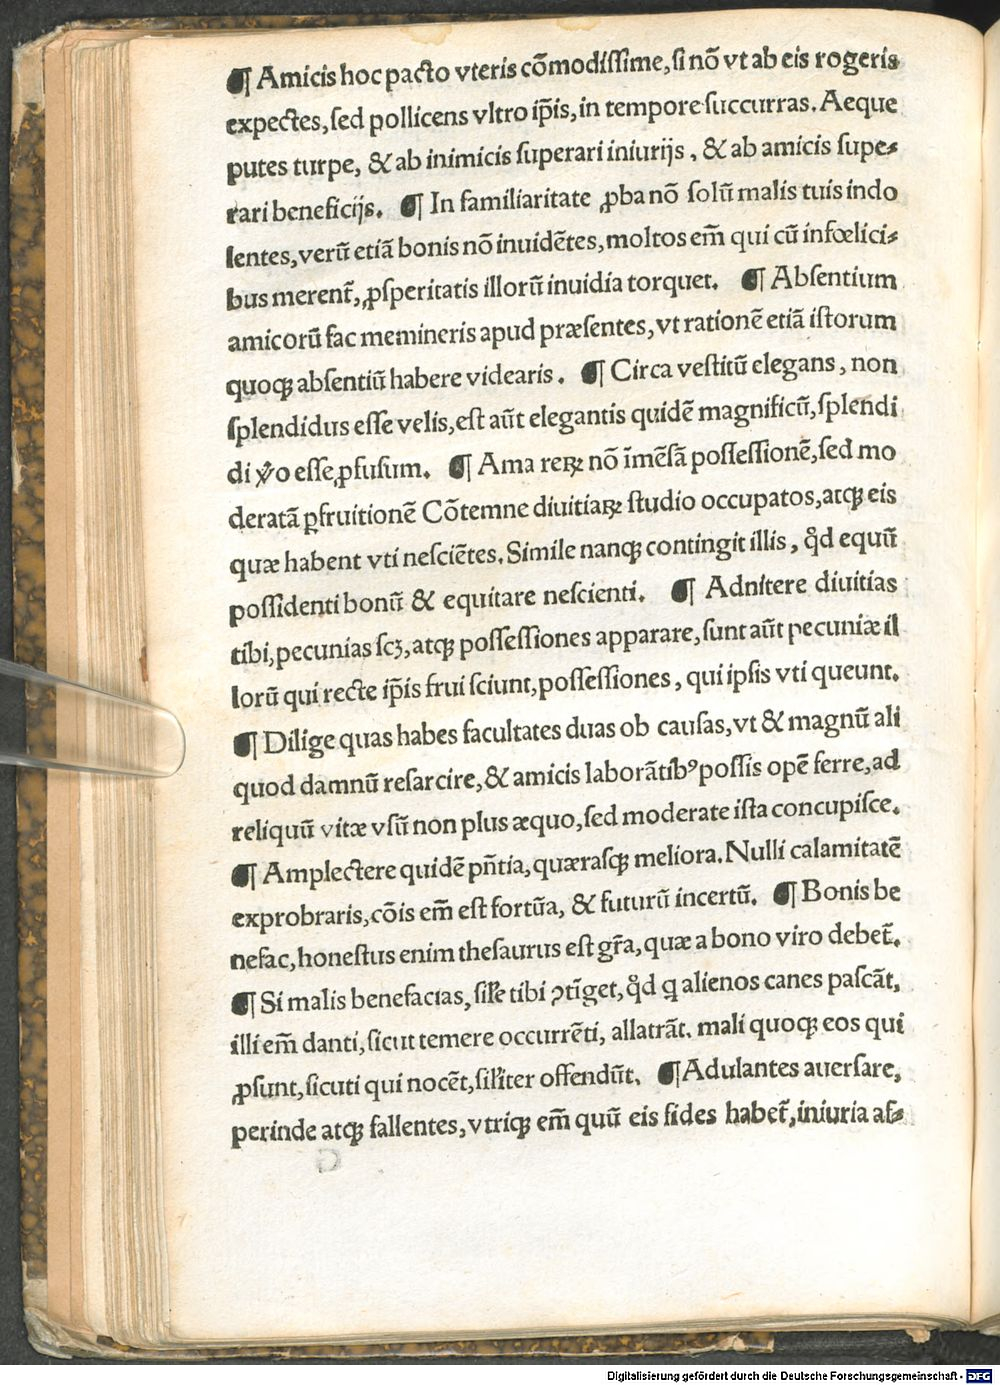 ¶ Amicis hoc pacto vteris cõmodiſſime, ſi nõ vt ab eis rogeris
expectes, ſed pollicens vltro ip̃is, in tempore ſuccurras. Aeque
putes turpe, & ab inimicis ſuperari iniurijs, & ab amicis ſupe⸗
rari beneficijs. ¶ In familiaritate ꝓba nõ ſolũ malis tuis indo
lentes, verũ etiã bonis nõ inuidẽtes, moltos em̃ qui cũ infœlici⸗
bus merent̃, ꝓſperitatis illorũ inuidia torquet. ¶ Abſentium
amicorũ fac memineris apud præſentes, vt rationẽ etiã iſtorum
quoqꝫ abſentiũ habere videaris. ¶ Circa veſtitũ elegans, non
ſplendidus eſſe velis, eſt aũt elegantis quidẽ magnificũ, ſplendi
di ꝟo eſſe ꝓfuſum. ¶ Ama reꝝ nõ ĩmẽſã poſſeſſionẽ, ſed mo
deratã ꝑfruitionẽ Cõtemne diuitiaꝝ ſtudio occupatos, atqꝫ eis
quæ habent vti neſciẽtes. Simile nanqꝫ contingit illis, qd̓ equũ
poſſidenti bonũ & equitare neſcienti. ¶ Adnitere diuitias
tibi, pecunias ſcꝫ, atqꝫ poſſeſſiones apparare, ſunt aũt pecuniæ il
lorũ qui recte ip̃is frui ſciunt, poſſeſſiones, qui ipſis vti queunt.
¶ Dilige quas habes facultates duas ob cauſas, vt & magnũ ali
quod damnũ reſarcire, & amicis laborãtibꝰ poſſis opẽ ferre, ad
reliquũ vitæ vſũ non plus æquo, ſed moderate iſta concupiſce.
¶ Amplectere quidẽ pñtia, quæraſqꝫ meliora. Nulli calamitatẽ
exprobraris, cõis em̃ eſt fortũa, & futurũ incertũ. ¶ Bonis be
nefac, honeſtus enim theſaurus eſt gr̃a, quæ a bono viro debet̃.
¶ Si malis benefacias, ſil̓e tibi ꝯtĩget, qd̓ q alienos canes paſcãt,
illi em̃ danti, ſicut temere occurrẽti, allatrãt. mali quoqꝫ eos qui
ꝓſunt, ſicuti qui nocẽt, ſil̓iter offendũt. ¶ Adulantes auerſare,
perinde atqꝫ fallentes, vtriqꝫ em̃ quũ eis fides habet̃, iniuria aſ⸗
Digitalisierung gefördert durch die Deutsche Forschungsgemeinschaft - DFG